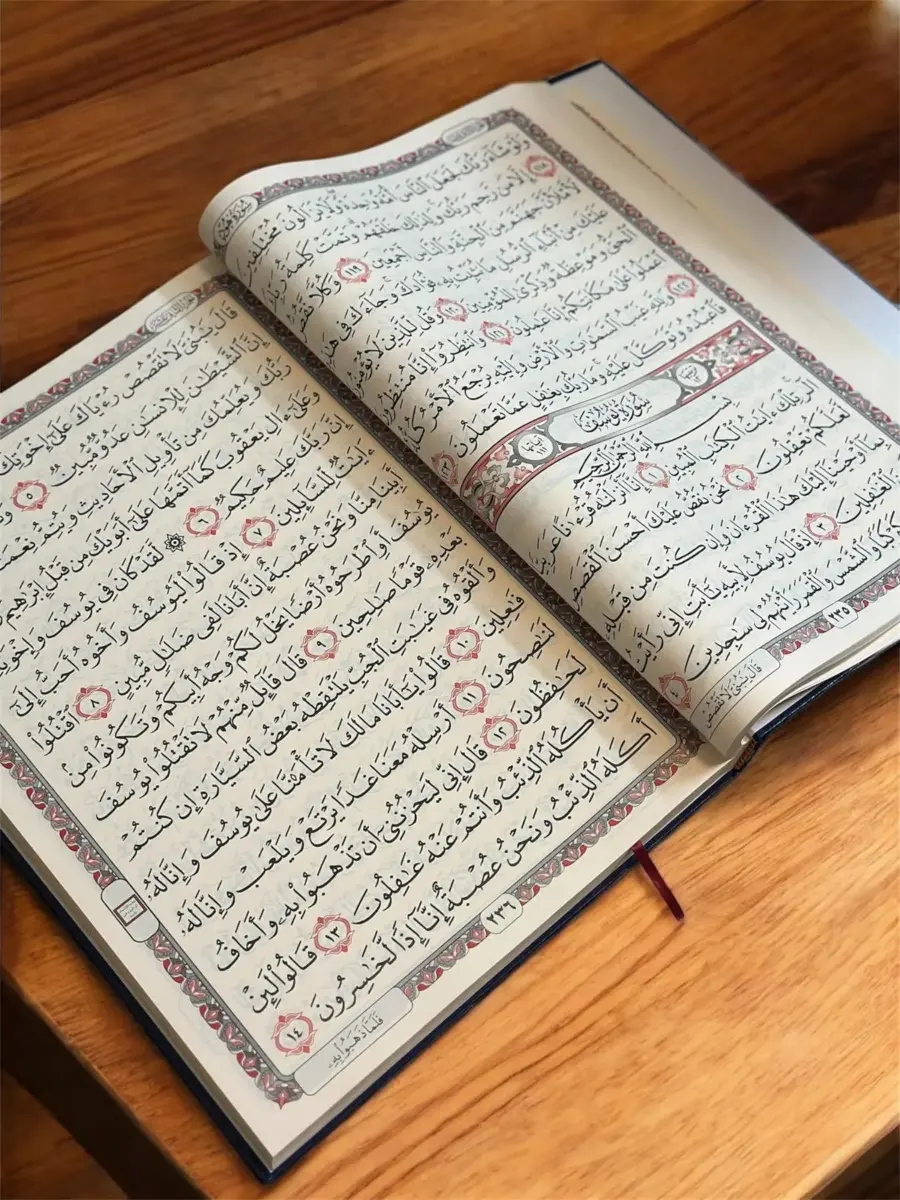 سُورَةُ هُودٍ
وَلَوْ شَآءَ رَبُّكَ لَجَعَلَ ٱلنَّاسَ أُمَّةً وَٰحِدَةً وَلَا يَزَالُونَ مُخْتَلِفِينَ
١١٨ إِلَّا مَن رَّحِمَ رَبُّكَ وَلِذَٰلِكَ خَلَقَهُمْ وَتَمَّتْ كَلِمَةُ رَبِّكَ
لَأَمْلَأَنَّ جَهَنَّمَ مِنَ ٱلْجِنَّةِ وَٱلنَّاسِ أَجْمَعِينَ ١١٩ وَكُلًّا نَّقُصُّ
عَلَيْكَ مِنْ أَنۢبَآءِ ٱلرُّسُلِ مَا نُثَبِّتُ بِهِۦ فُؤَادَكَ وَجَآءَكَ فِى هَٰذِهِ
ٱلْحَقُّ وَمَوْعِظَةٌ وَذِكْرَىٰ لِلْمُؤْمِنِينَ ١٢٠ وَقُل لِّلَّذِينَ لَا يُؤْمِنُونَ
ٱعْمَلُوا۟ عَلَىٰ مَكَانَتِكُمْ إِنَّا عَٰمِلُونَ ١٢١ وَٱنتَظِرُوٓا۟ إِنَّا مُنتَظِرُونَ
١٢٢ وَلِلَّهِ غَيْبُ ٱلسَّمَٰوَٰتِ وَٱلْأَرْضِ وَإِلَيْهِ يُرْجَعُ ٱلْأَمْرُ كُلُّهُۥ
فَٱعْبُدْهُ وَتَوَكَّلْ عَلَيْهِ وَمَا رَبُّكَ بِغَٰفِلٍ عَمَّا تَعْمَلُونَ ١٢٣
سُورَةُ يُوسُفَ
بِسْمِ ٱللَّهِ ٱلرَّحْمَٰنِ ٱلرَّحِيمِ
الٓر تِلْكَ ءَايَٰتُ ٱلْكِتَٰبِ ٱلْمُبِينِ ١ إِنَّآ أَنزَلْنَٰهُ قُرْءَٰنًا عَرَبِيًّا
لَّعَلَّكُمْ تَعْقِلُونَ ٢ نَحْنُ نَقُصُّ عَلَيْكَ أَحْسَنَ ٱلْقَصَصِ
بِمَآ أَوْحَيْنَآ إِلَيْكَ هَٰذَا ٱلْقُرْءَانَ وَإِن كُنتَ مِن قَبْلِهِۦ
ٱلْغَٰفِلِينَ ٣ إِذْ قَالَ يُوسُفُ لِأَبِيهِ يَٰٓأَبَتِ إِنِّى رَأَيْتُ
كَوْكَبًا وَٱلشَّمْسَ وَٱلْقَمَرَ رَأَيْتُهُمْ لِى سَٰجِدِينَ ٤
٢٣٥
قَالَ يَٰبُنَىَّ لَا تَقْصُصْ
قَالَ يَٰبُنَىَّ لَا تَقْصُصْ رُءْيَاكَ عَلَىٰٓ إِخْوَتِكَ
إِنَّ ٱلشَّيْطَٰنَ لِلْإِنسَٰنِ عَدُوٌّ مُّبِينٌ ٥
رَبُّكَ وَيُعَلِّمُكَ مِن تَأْوِيلِ ٱلْأَحَادِيثِ وَيُتِمُّ نِعْمَتَهُۥ
وَعَلَىٰٓ ءَالِ يَعْقُوبَ كَمَآ أَتَمَّهَا عَلَىٰٓ أَبَوَيْكَ مِن قَبْلُ إِبْرَٰهِيمَ
إِنَّ رَبَّكَ عَلِيمٌ حَكِيمٌ ٦ ۞ لَّقَدْ كَانَ فِى يُوسُفَ وَإِخْوَتِهِۦٓ
ءَايَٰتٌ لِّلسَّآئِلِينَ ٧ إِذْ قَالُوا۟ لَيُوسُفُ وَأَخُوهُ أَحَبُّ إِلَىٰٓ
أَبِينَا مِنَّا وَنَحْنُ عُصْبَةٌ إِنَّ أَبَانَا لَفِى ضَلَٰلٍ مُّبِينٍ ٨ ٱقْتُلُوا۟
يُوسُفَ أَوِ ٱطْرَحُوهُ أَرْضًا يَخْلُ لَكُمْ وَجْهُ أَبِيكُمْ وَتَكُونُوا۟ مِنۢ
بَعْدِهِۦ قَوْمًا صَٰلِحِينَ ٩ قَالَ قَآئِلٌ مِّنْهُمْ لَا تَقْتُلُوا۟ يُوسُفَ
وَأَلْقُوهُ فِى غَيَٰبَتِ ٱلْجُبِّ يَلْتَقِطْهُ بَعْضُ ٱلسَّيَّارَةِ إِن كُنتُمْ
فَٰعِلِينَ ١٠ قَالُوا۟ يَٰٓأَبَانَا مَا لَكَ لَا تَأْمَ۫نَّا عَلَىٰ يُوسُفَ وَإِنَّا لَهُۥ
لَنَٰصِحُونَ ١١ أَرْسِلْهُ مَعَنَا غَدًا يَرْتَعْ وَيَلْعَبْ وَإِنَّا لَهُۥ
لَحَٰفِظُونَ ١٢ قَالَ إِنِّى لَيَحْزُنُنِىٓ أَن تَذْهَبُوا۟ بِهِۦ وَأَخَافُ
أَن يَأْكُلَهُ ٱلذِّئْبُ وَأَنتُمْ عَنْهُ غَٰفِلُونَ ١٣ قَالُوا۟ لَئِنْ
أَكَلَهُ ٱلذِّئْبُ وَنَحْنُ عُصْبَةٌ إِنَّآ إِذًا لَّخَٰسِرُونَ ١٤
٢٣٦
فَلَمَّا ذَهَبُوا۟ بِهِۦ